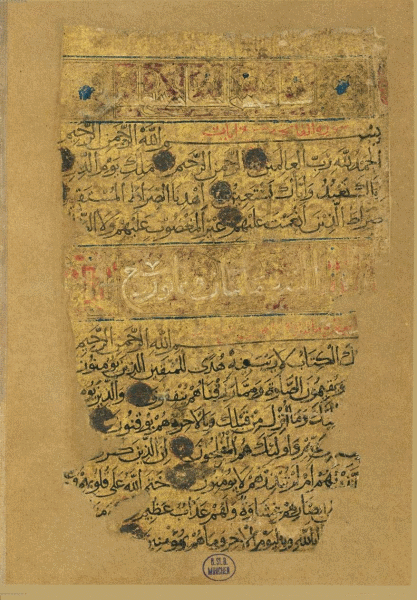 بسم الله الرحمن الرحيم
الحمد لله رب العالمين الرحمن الرحيم ملك يوم الدين
ياك نعبد واياك نستعين اهدنا الصراط المستقيم
صراط الذين انعمت عليهم غير المغضوب عليهم ولا الضا
الله الرحمن الرحيم
لك الكتاب لا ريب فيه هدى للمتقين الذين يؤمنون
ويقيمون الصلوة ومما رزقناهم ينفقون والذين يوم
ليك وما انزل من قبلك وبالاخرة هم يوقنون
ربهم واولئك هم المفلحون ان الذين كفر
انذرتهم ام لم تنذرهم لا يؤمنون ختم الله على قلوبهم و
ابصارهم غشاوة ولهم عذاب عظيم
بالله وباليوم الاخر وما هم بمؤمنين
B.S.B.
MÜNCHEN